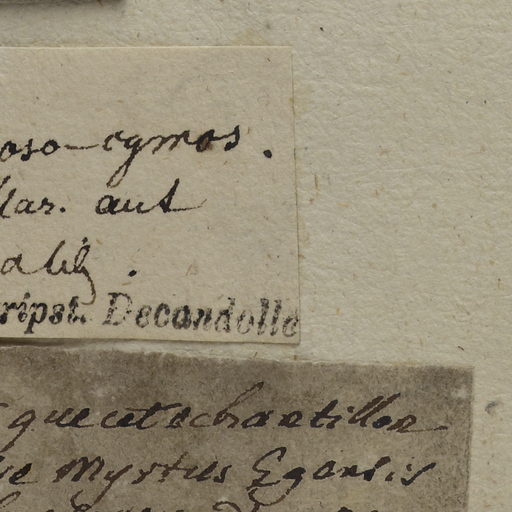 oso-cymos.
llar. aut
alib.
ripsit. Decandolle
que cet echantillon
Myrtus Egensis